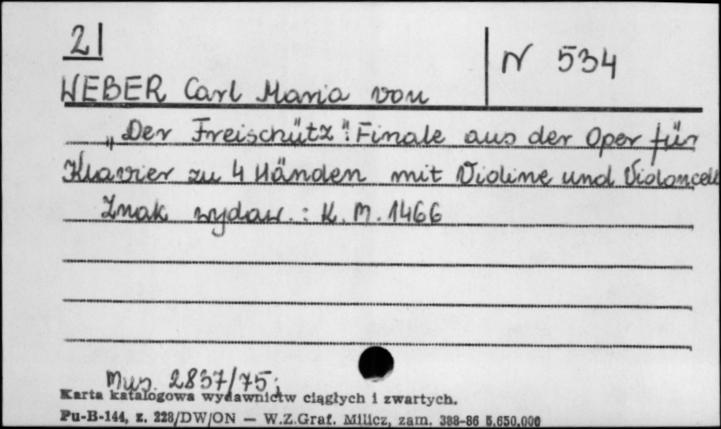 21
N 534
WEBER Carl Maria von
„Der Freischütz": Finale aus der Oper für
Klavier zu 4 Händen mit Violine und Violoncell
Znak wydaw.: K. M. 1466
Mus. 2837/75;
Karta katalogowa wydawnictw ciągłych i zwartych.
Pu-B-144, z. 228/DW/ON — W.Z.Graf. Milicz, zam. 388-86 5,650,000